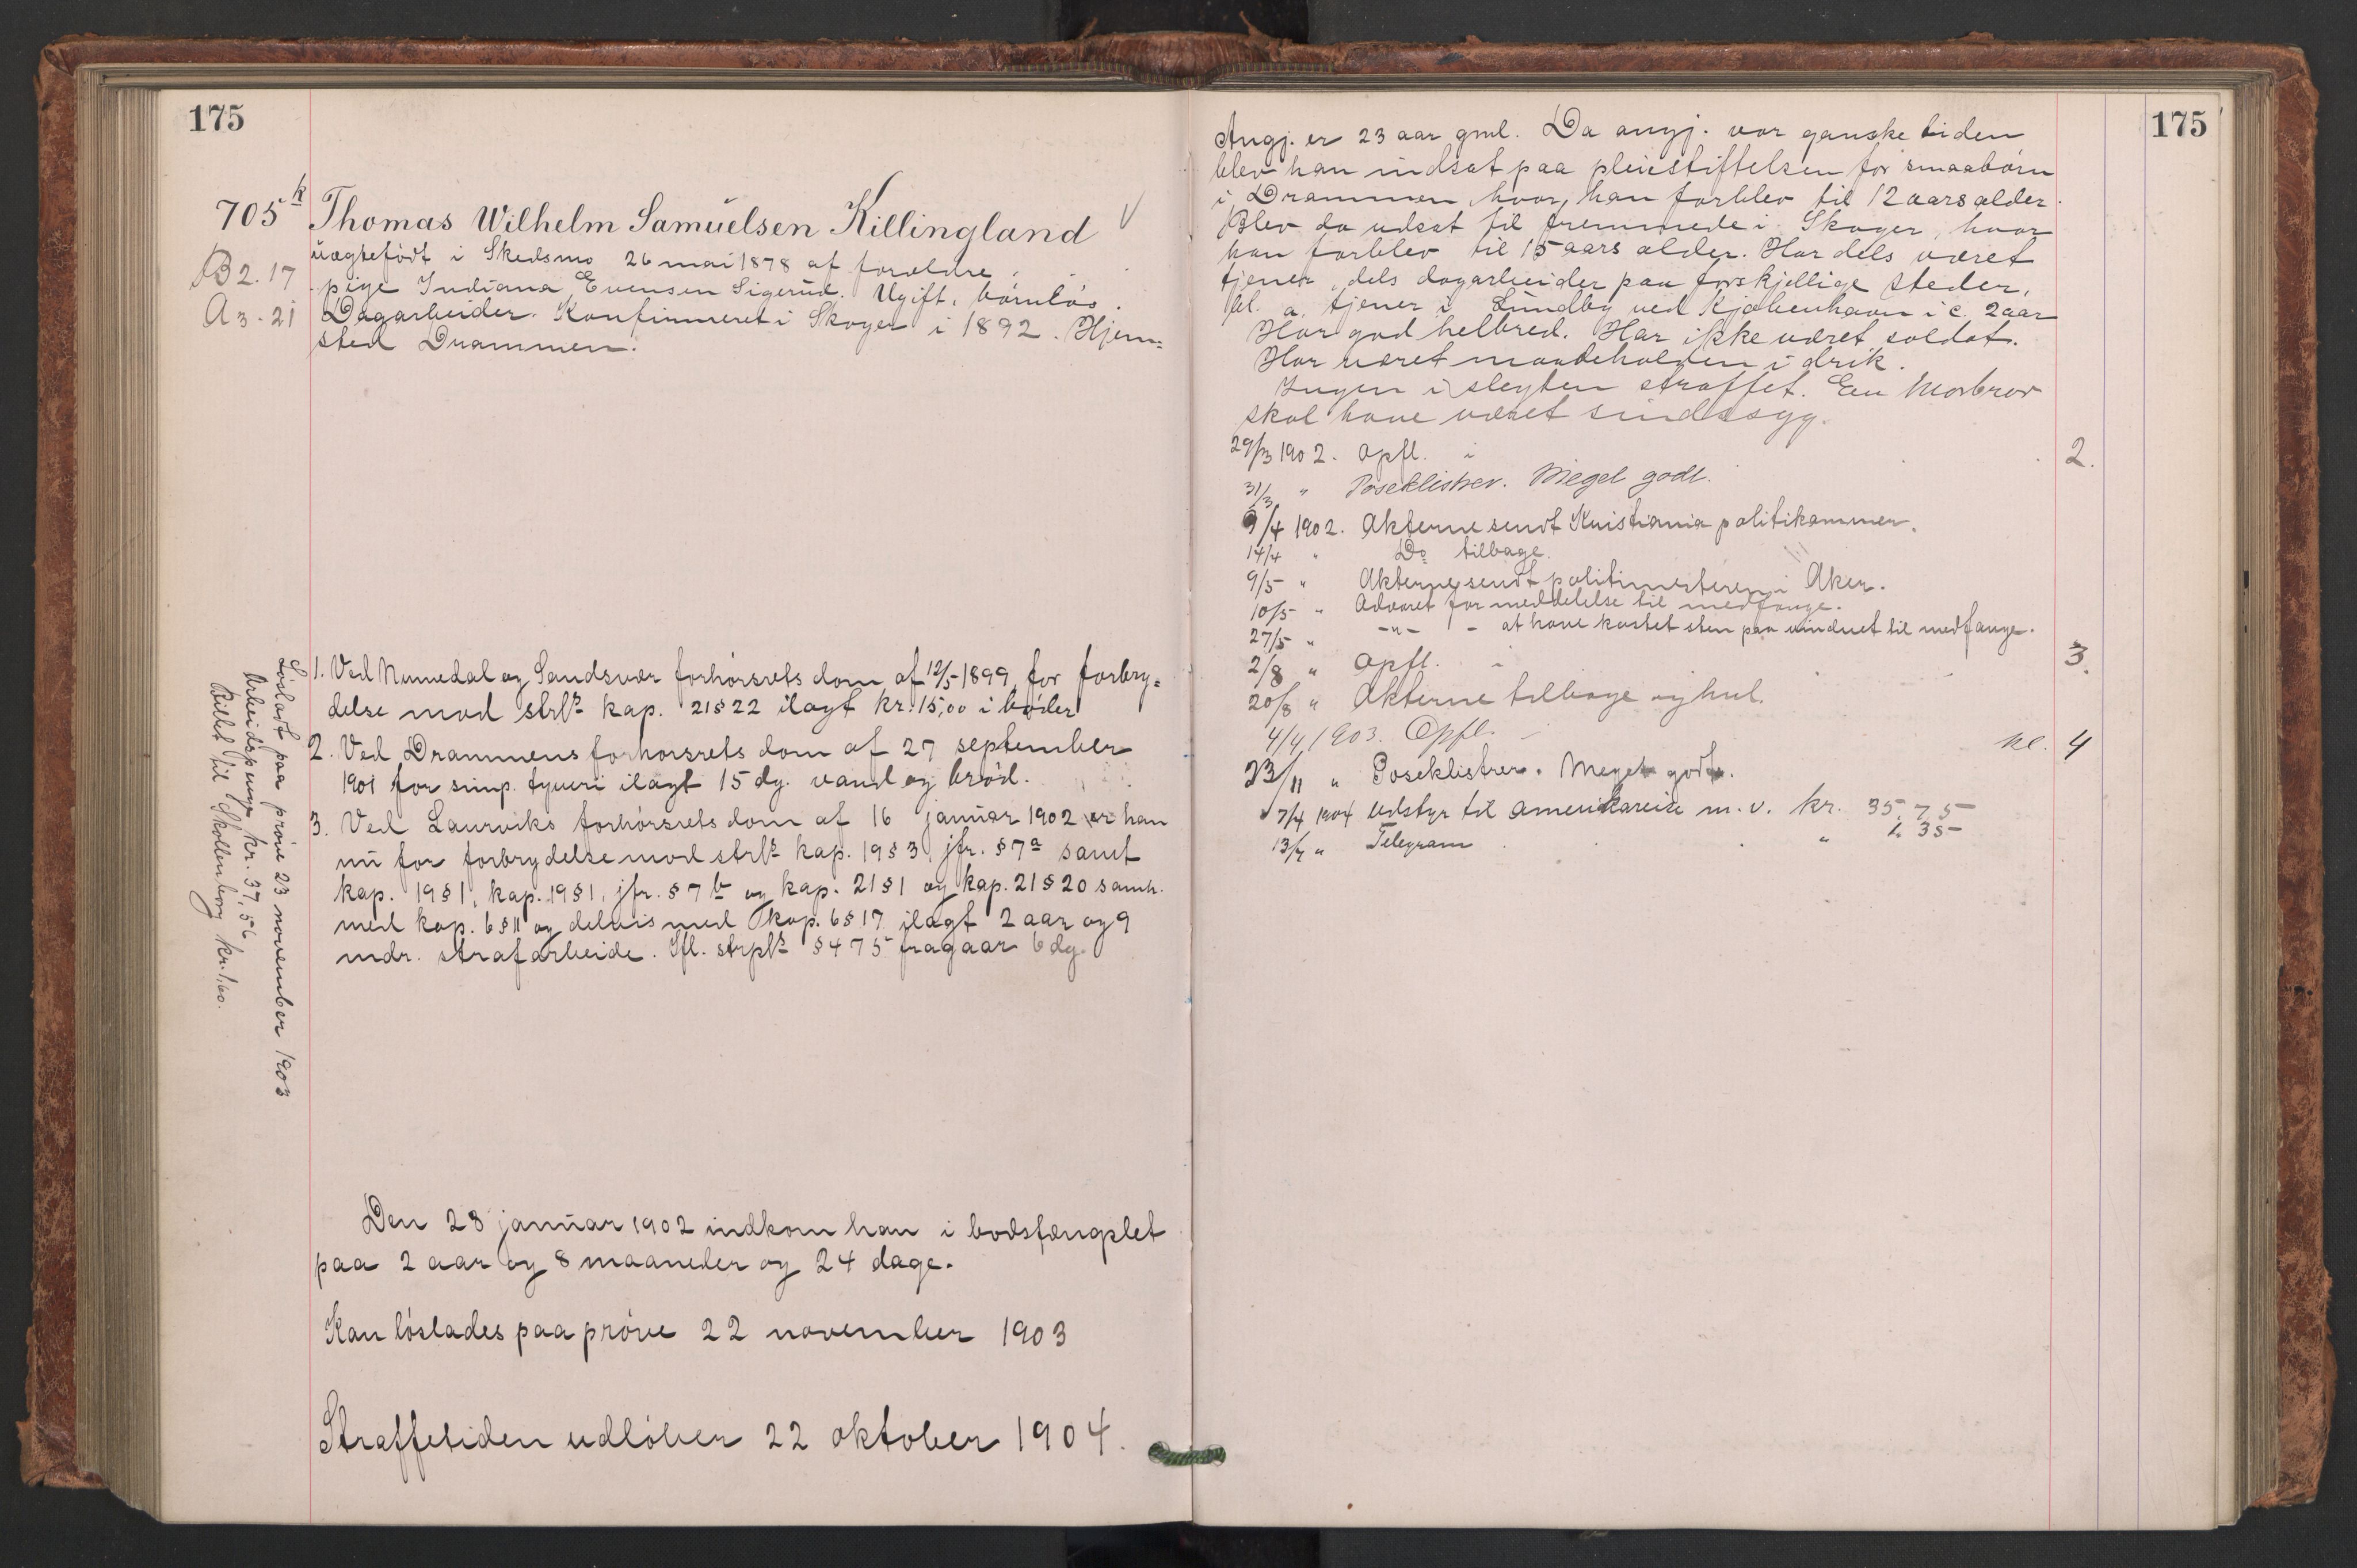 175
705 k Thomas Wilhelm Samüelsen Killingland
B 2. 17
A 3 - 21
uægtefödt i Skedsmo 26 mai 1878 af forældre:
pige Indiana Evensen Sigerüd. Ugift, börnlös.
Dagarbeider. Konfirmeret i Skoger i 1892. Hjem=
sted Drammen.
1. Ved Numedal og Sandsvær forhörsrets dom af 12/5 1899 for forbry=
delse mod strl. kap. 21 § 22 ilagt kr. 15,00 i böder
2. Ved Drammens forhörsrets dom af 27 september
1901 for simp. tyveri ilagt 15 dg. vand og bröd.
3. Ved Laurviks forhörsrets dom af 16 januar 1902 er han
nü for forbrydelse mod strl. kap. 19 § 3 jfr. § 7 a samt
kap. 19 § 1, kap. 19 § 1, jfr. § 7 b og kap. 21 § 1 og kap. 21 § 20 samh.
med kap. 6 § 11 og delvis med kap. 6 § 17 ilagt 2 aar og 9
mdr. strafarbeide. Ifl. strpl. § 475 fragaar 6 dg.
Lösladt paa pröve 23 november 1903
Arbeidspenge kr. 37,56
Billet til Skollenborg kr. 1,60.
Den 28 januar 1902 indkom han i bodsfængslet
paa 2 aar og 8 maaneder og 24 dage.
Kan löslades paa pröve 22 november 1903
Straffetiden udlöber 22 oktober 1904.
175
Angj. er 23 aar gml. Da angj. var ganske liden
blev han indsat paa pleiestiftelsen for smaabörn
i Drammen, hvor han forblev til 12 aars alder.
Blev da udsat til fremmede i Skoger, hvor
han forblev til 15 aars alder. Har dels været
tjener, dels dagarbeider paa forskjellige steder,
bl. a. tjener i Lundby ved Kjøbenhavn i c. 2 aar
Har god helbred. Har ikke været soldat.
Har været maadeholden i drik.
Ingen i slegten straffet. En Morbror
skal have været sindssyg.
29/3 1902. Opfl. i 2.
31/3 " Poseklistrer. Meget godt.
9/4 1902. Akterne sendt Kristiania politikammer.
14/4 " Do tilbage.
9/5 " Akterne sendt politimesteren i Aker.
10/5 " Advaret for meddelelse til medfange.
27/5 " -"- - at have kastet sten paa vinduet til medfange.
2/8 " Opfl. i 3.
20/8 " Akterne tilbage og hul.
4/4 1903. Opfl. - kl. 4
23/11 " Poseklistrer. Meget godt.
7/4 1904 Udstyr til amerikareise m. v. kr. 35,75
13/4 " Telegram " 1,35